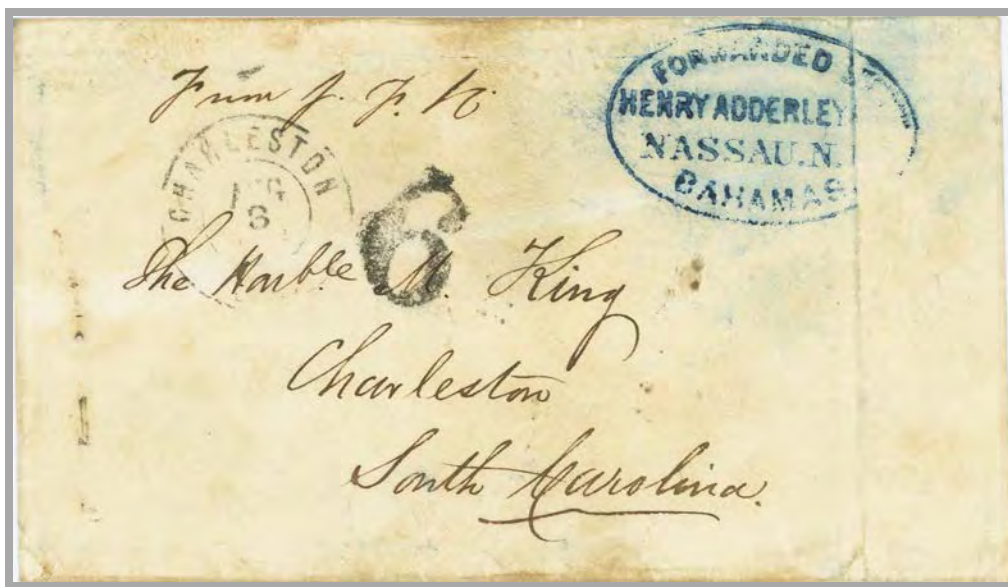 From J. F. K.
FORWARDED
HENRY ADDERLEY
NASSAU. N.
BAHAMAS
CHARLESTON
AUG
6
The Honble M. King
Charleston
South Carolina.